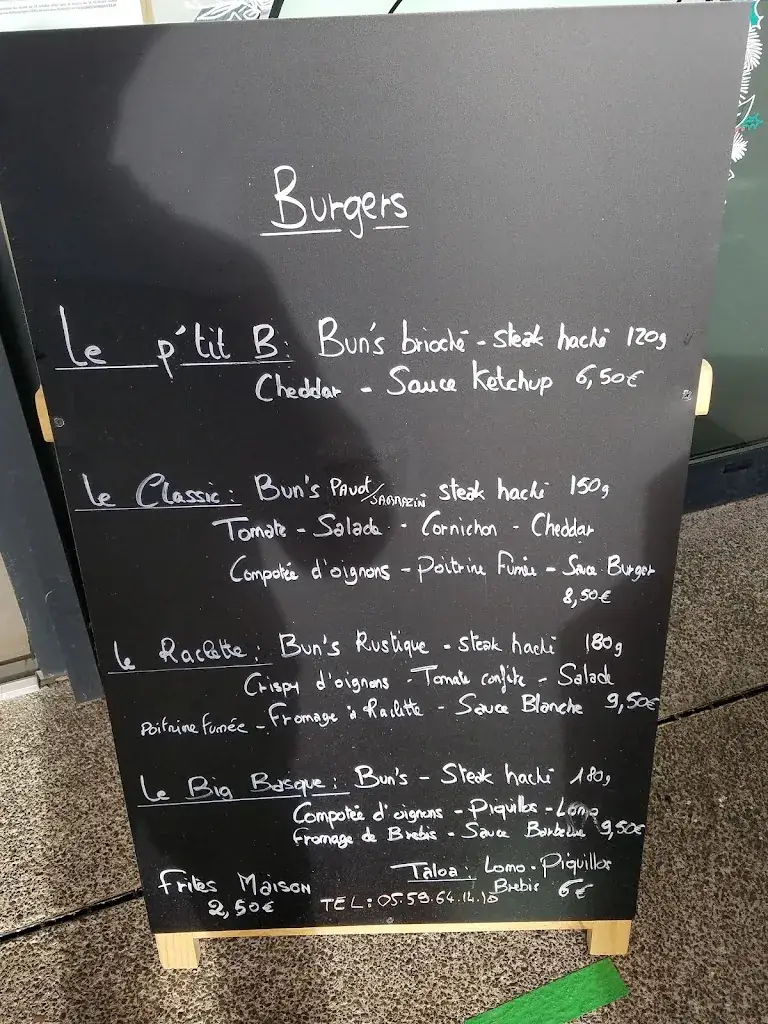 Burgers
Le p'tit B: Bun's brioché - steak haché 120g
Cheddar - Sauce Ketchup 6,50€
Le Classic: Bun's Pavot/SARRAZIN - steak haché 150g
Tomate - Salade - Cornichon - Cheddar
Compotée d'oignons - Poitrine Fumée - Sauce Burger
8,50€
Le Raclette: Bun's Rustique - steak haché 180g
Crispy d'oignons - Tomate confite - Salade
Poitrine fumée - Fromage à Raclette - Sauce Blanche 9,50€
Le Big Basque: Bun's - Steak haché 180g
Compotée d'oignons - Piquillos - Lomo
Fromage de Brebis - Sauce Barbecue 9,50€
Frites MAISON
2,50€
Taloa: Lomo - Piquillos
Brebis 6€
TEL: 05.59.64.14.10